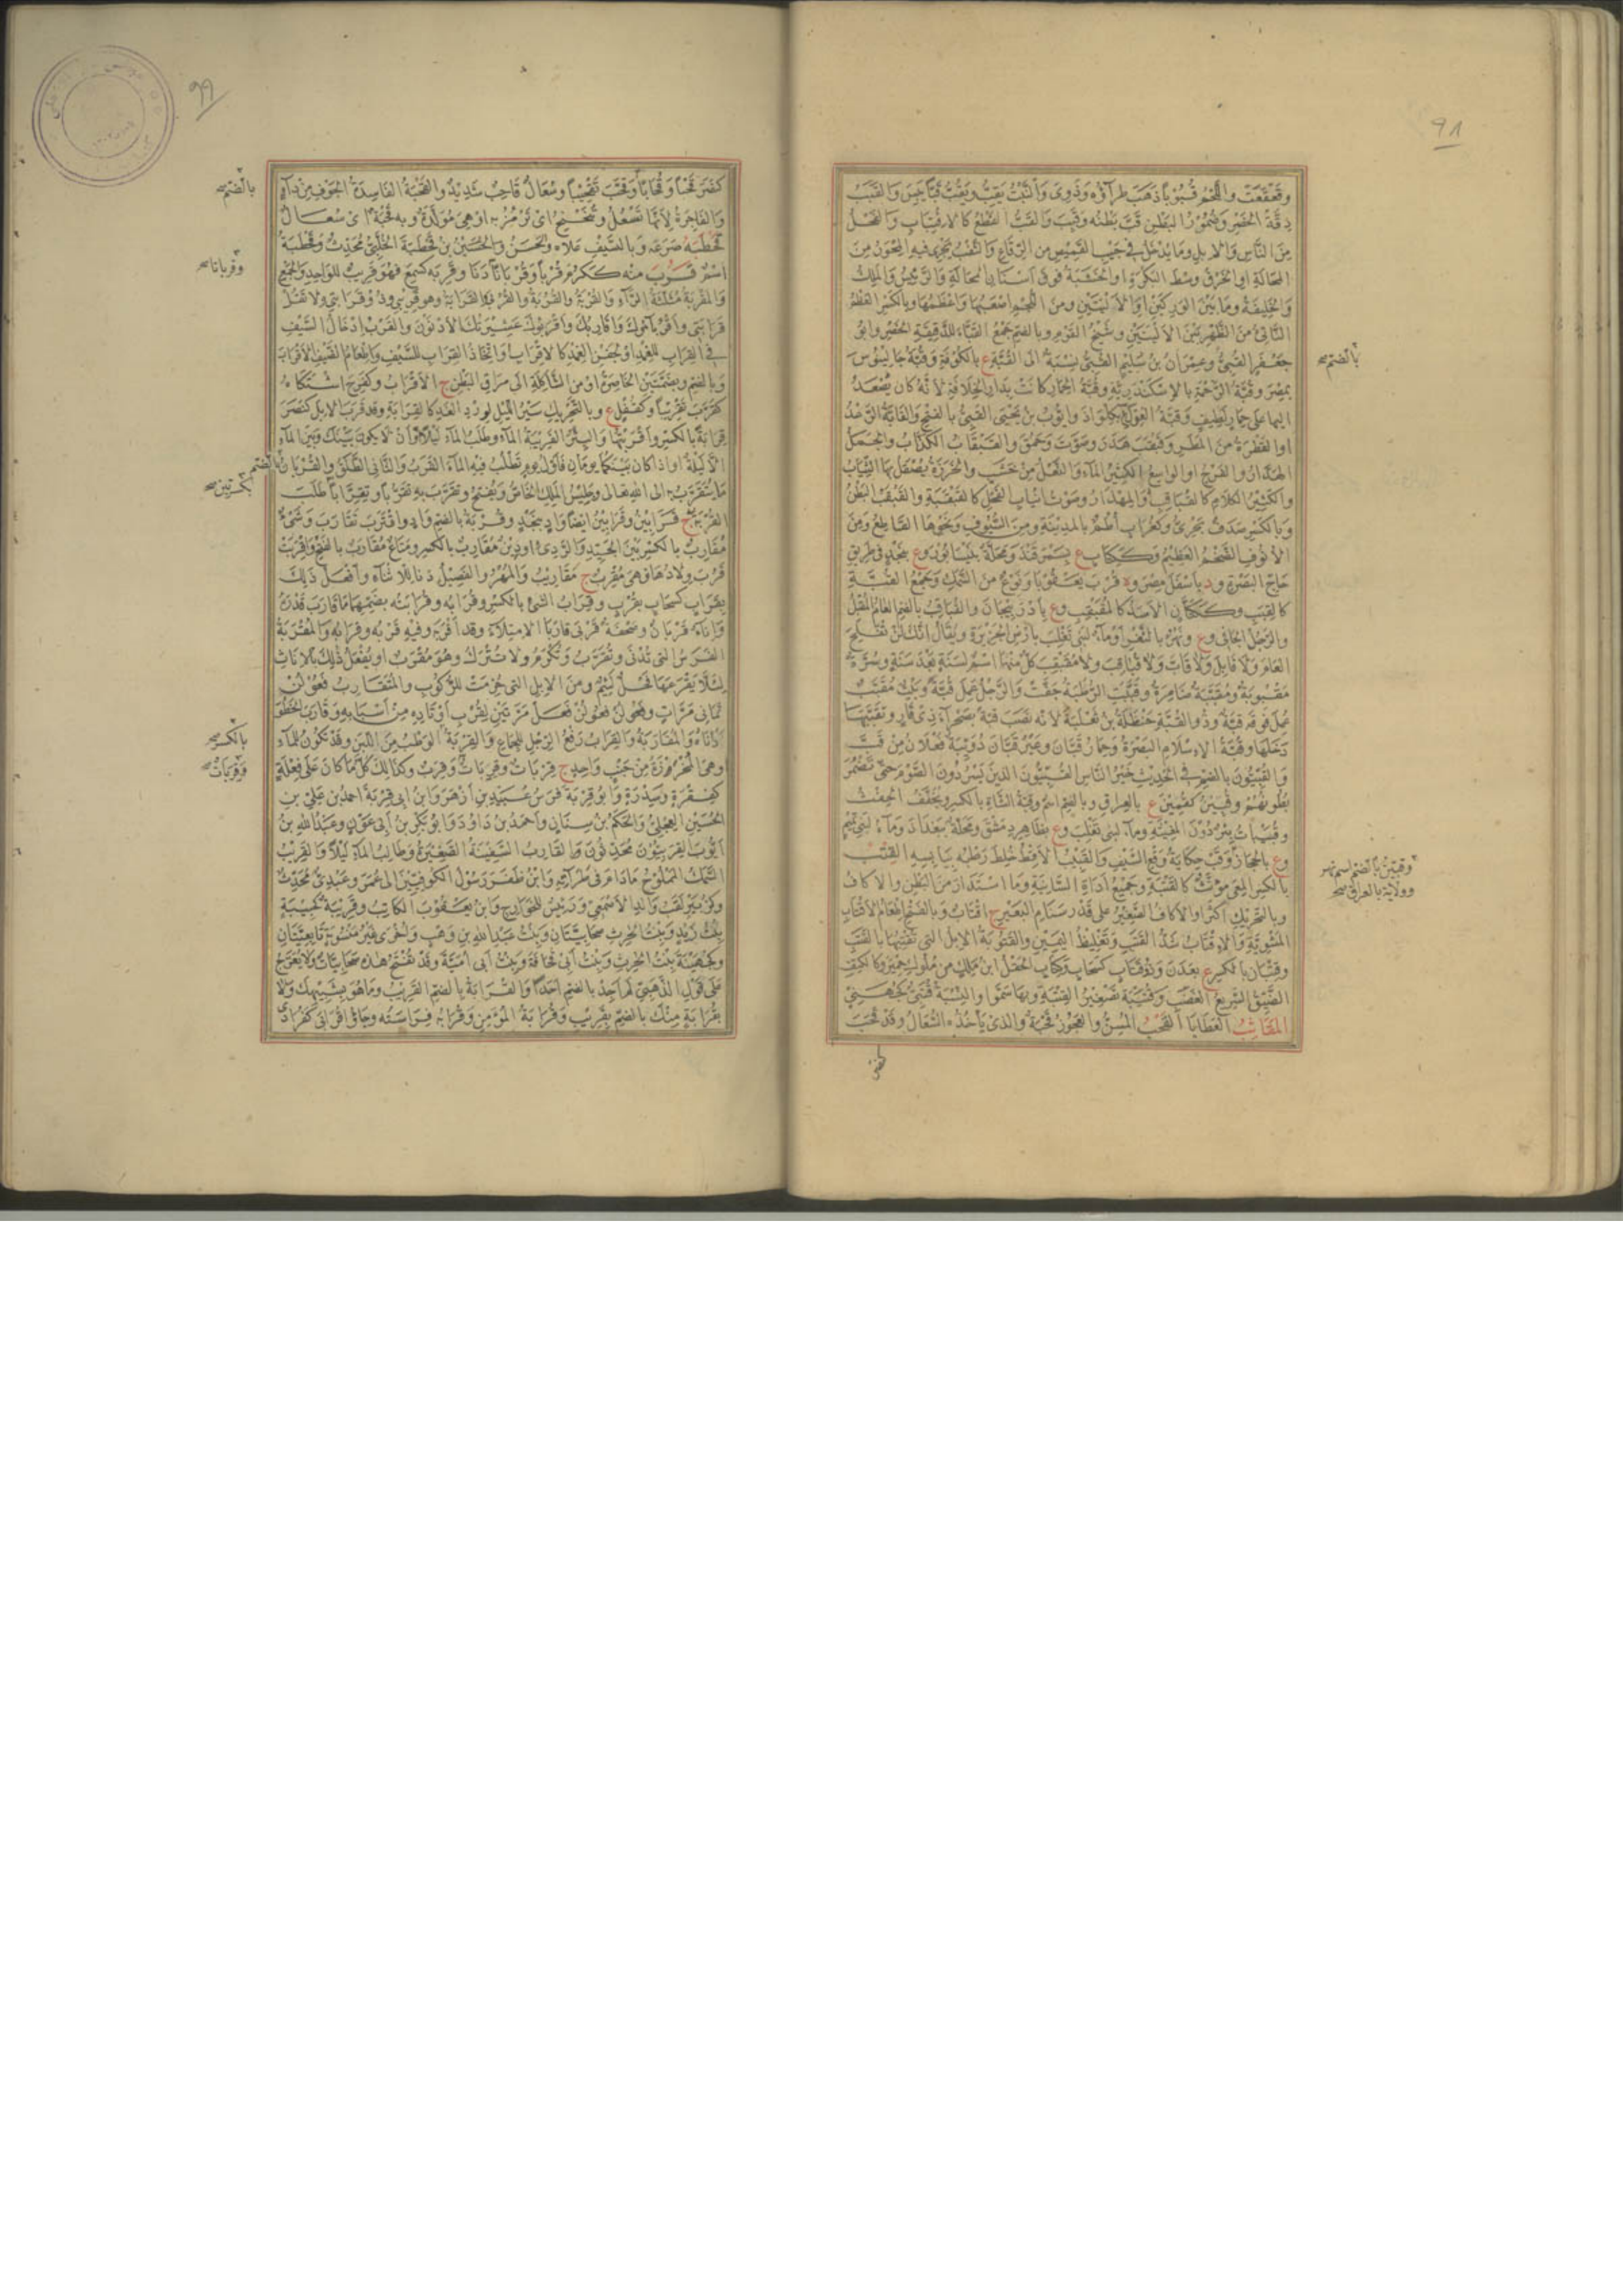 ٩٨
وقعقعت واللحم قبوبا ذهب طرآؤه وذوى والنبت يقب ويقب قبا يبس والقبب
دقة الخصر وضمور البطن قب بطنه وقبب والقب القطع كالاقتباب والفحل
من الناس والابل وما يدخل فى جيب القميص من الرقاع والثقب يجرى فيه المحور من
المحالة او الخرق وسط البكرة او الخشبة فوق اسنان المحالة والرئيس والملك
والخليفة وما بين الوركين او الاليتين ومن اللجم اصعبها واعظمها وبالكسر العظم
الناتئ من الظهر بين الاليتين وشيخ القوم وبالضم جمع القباء للدقيقة الخصر وابو
جعفر القبى وعمران بن سليم القبى نسبة الى القبة ع بالكوفة وقبة جالينوس
بمصر وقبة الرحمة بالاسكندرية وقبة الحمار كانت بدار الخلافة لانه كان يصعد
اليها على حمار لطيف وقبة الفرك بكلواذ وايوب بن يحيى القبى بالفتح والقابة الرعد
او القطرة من المطر وقبقب هدر وصوت وحمق والقبقاب الكذاب والجمل
الهدار والفرج او الواسع الكثير المآء والنعل من خشب والخرزة يصقل بها الثياب
والكثير الكلام كالقباقب والمهذار وصوت انياب الفحل كالقبقبة والقبقب البطن
وبالكسر صدف بحرى وكغراب أطم بالمدينة ومن السيوف ونحوها القاطع ومن
الانوف الضخم العظيم وككتاب ع بسمرقند ومحلة بنيسابور وع بنجد فى طريق
حاج البصرة ود باسفل مصر وة قرب بعقوبا ونوع من السمك وجمع القبة
كالقبب وككتان الاسد كالمقبقب وع باذربيجان والقباقب بالضم العام المقبل
والرجل الجافى وع ونهر بالثغر او مآء لبنى تغلب بارض الجزيرة ويقال انك لن تفلح
العام ولا قابل ولا قاب ولا قباقب ولا مقبقب كل منها اسم لسنة بعد سنة وسرة
مقبوبة ومقببة ضامرة وقببت الرطبة جفت والرجل عمل قبة وبيت مقبب
عمل فوقه قبة وذو القبة حنظلة بن ثعلبة لانه نصب قبة بصحرآء ذى قار وتقببها
دخلها وقبة الاسلام البصرة وحمار قبان وعير قبان دويبة فعلان من قب
والقبيون بالضم فى الحديث خير الناس القبيون الذين يسردون الصوم حتى تضمر
بطونهم وقبين كقمين ع بالعراق وبالضم اسم وقبة الشاة بالكسر ويخفف الحفث
وقبيبات بئر دون المغيثة ومآء لبنى تغلب وع بظاهر دمشق ومحلة ببغداد ومآء لبنى تميم
وع بالحجاز وقب حكاية وقع السيف والقبيب الاقط خلط رطبه بيابسه القتب
بالكسر المعى مؤنث كالقتبة وجميع اداة السانية وما استدار من البطن والاكاف
وبالتحريك اكثر او الاكاف الصغير على قدر سنام البعير ج اقتاب وبالفتح اطعام الاقتاب
المشوية والاقتاب شد القتب وتغليظ اليمين والقتوبة الابل التى تقتبها بالقتب
وقتبان بالكسر ع بعدن وذوقتاب كسحاب وكتاب الحقل ابن مالك من ملوك حمير وكالكتف
الضيق السريع الغضب وقتيبة تصغير القتبة وبها سموا والنسبة قتبى كجهنى
المقاثب العطايا القحب المسن والعجوز قحبة والذى يأخذه السعال وقد قحب
كنصر
بالضم صح
وقبين بالضم اسم نهر
وولاية بالعراق صح
٩٩
كنصر قحبا وقحابا وقحب تقحيبا وسعال قاحب شديد والقحبة الفاسدة الجوف من دآء
والفاجرة لانها تسعل وتنحنح اى ترمز به او هى مولدة وبه قحبة اى سعال
قحطبه صرعه وبالسيف علاه والحسن والحسين بن قحطبة الحلبى محدث وقحطبة
اسم قرب منه ككرم قربا وقربانا دنا وقربه كسمع فهو قريب للواحد والجمع
والمقربة مثلثة الرآء والقربة والقربة والقربى القرابة وهو قريبى وذو قرابتى ولا تقل
قرابتى واقربآؤك واقاربك واقربوك عشيرتك الادنون والقرب ادخال السيف
فى القراب للغمد او لجفن الغمد كالاقراب واتخاذ القراب للسيف واطعام الضيف الاقراب
وبالضم وبضمتين الخاصرة او من الشاكلة الى مراق البطن ج الاقراب وكفرح اشتكاه
كقرب تقريبا وكقفل ع وبالتحريك سير الليل لورد الغد كالقرابة وقد قرب الابل كنصر
قرابة بالكسر واقربتها والبئر القريبة المآء وطلب المآء ليلا او ان لا يكون بينك وبين المآء
الا ليلة او اذا كان بينكما يومان فاول يوم تطلب فيه المآء القرب والثانى الطلق والقربان بالضم
ما يتقرب به الى الله تعالى وجليس الملك الخاص ويفتح وتقرب به تقربا وتقرابا طلب
القربة ج قرابين وقرابين ايضا واد بنجد وقربة بالضم واد واقترب تقارب وشئ
مقارب بالكسر بين الجيد والردى او دين مقارب بالكسر ومتاع مقارب بالفتح واقربت
قرب ولادها فهى مقرب ج مقاريب والمهر والفصيل دنا للاثناء وافعل ذلك
بقراب كسحاب بقرب وقراب الشئ بالكسر وقرابه وقرابته بضمهما ما قارب قدره
واناء قربان وصحفة قربى قاربا الامتلاء وقد اقربه وفيه قربه وقرابه والمقربة
الفرس التى تدنى وتقرب وتكرم ولا تترك وهو مقرب او يفعل ذلك بالاناث
لئلا يقرعها فحل لئيم ومن الابل التى حزمت للركوب والمتقارب فعولن
ثمانى مرات وفعولن فعولن فعل مرتين لقرب اوتاده من اسبابه وقارب الخطو
داناه والمقاربة والقراب رفع الرجل للجماع والقربة الوطب من اللبن وقد تكون للمآء
وهى المخروزة من جنب واحد ج قربات وقربات وقرب وكذلك كل ما كان على فعلة
كفقرة وسدرة وابو قربة فرس عبيد بن ازهر وابن ابى قربة احمد بن على بن
الحسين العجلى والحكم بن سنان واحمد بن داود وابو بكر بن ابى عون وعبد الله بن
ايوب القربيون محدثون والقارب السفينة الصغيرة وطالب المآء ليلا والقريب
السمك المملوح مادام فى طرآءته وابن ظفر رسول الكوفيين الى عمر وعبدى محدث
وكزبير لقب والد الاصمعى ورئيس للخوارج وابن يعقوب الكاتب وقريبة كحبيبة
بنت زيد وبنت الحرث صحابيتان وبنت عبد الله بن وهب واخرى غير منسوبة تابعيتان
وكجهينة بنت الحرث وبنت ابى قحافة وبنت ابى امية وقد تفتح هذه صحابيات ولا يعرج
على قول الذهبى لم اجد بالضم احدا والقرابة بالضم القريب وما هو بشبيهك ولا
بقرابة منك بالضم بقريب وقرابة المؤمن وقرابه فراسته وجاؤا قرابى كفرادى
بالضم صح
وقربانا صح
بكسرتين صح
بالكسر صح
وقربات صح